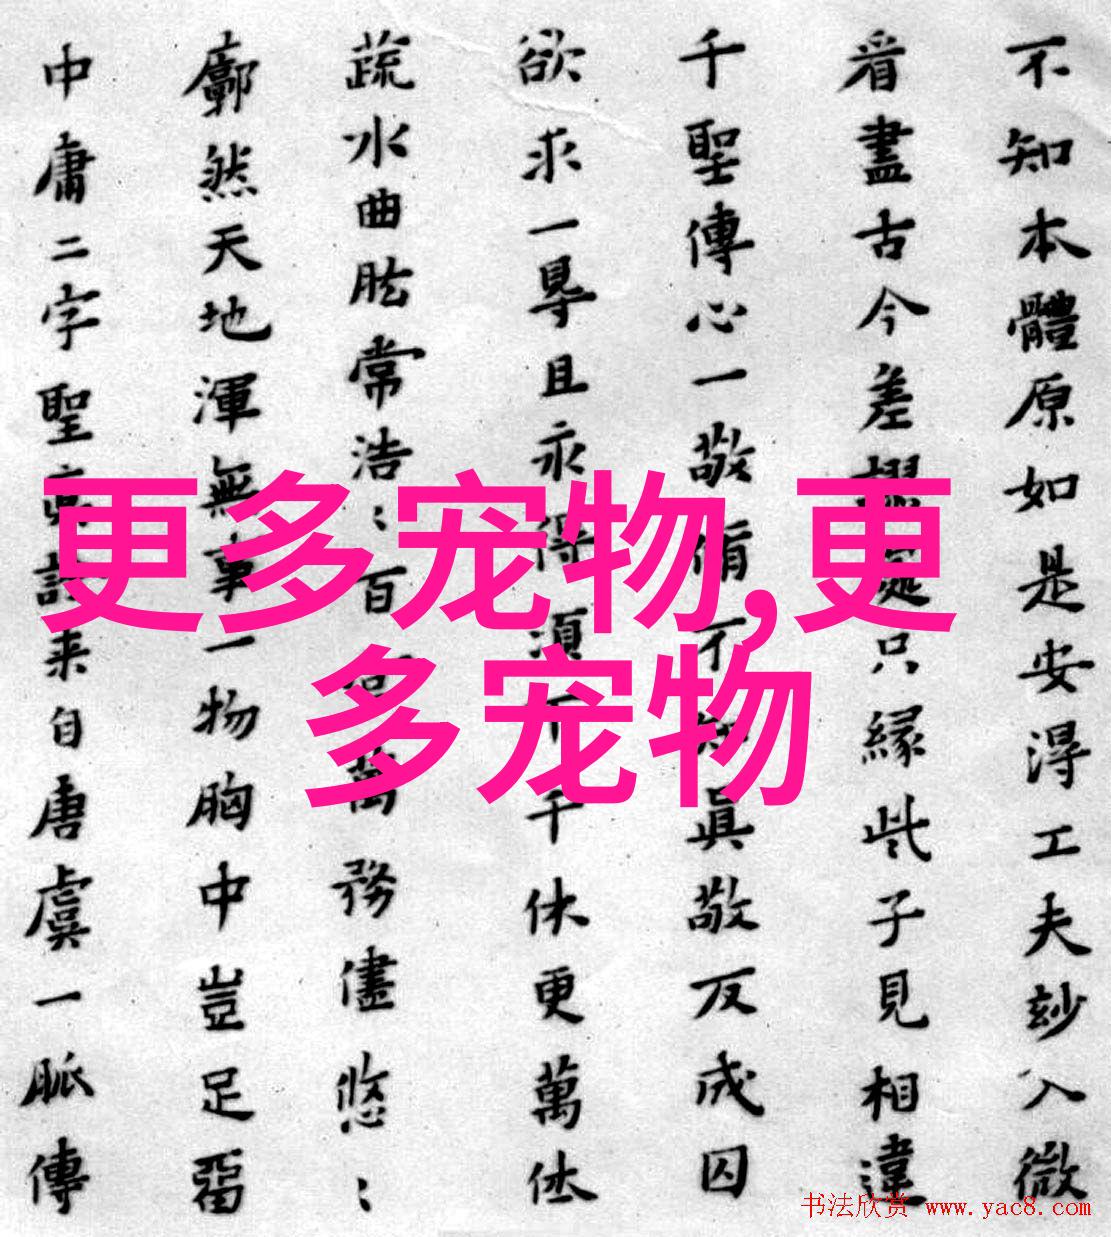 不知本體原如是安得工夫妙入微
看盡古今差只緣此子見相違
千聖傳心一敬脩不知真敬反成囚
欲求一尋且永得須千休更萬休
蔬水曲肱常浩：百萬務儘悠：
廓然天地渾無事一物胸中豈足留
中庸二字聖真訣来自唐虞一脈傳
更多宠物,更
多宠物
书法欣赏 www.yac8.com